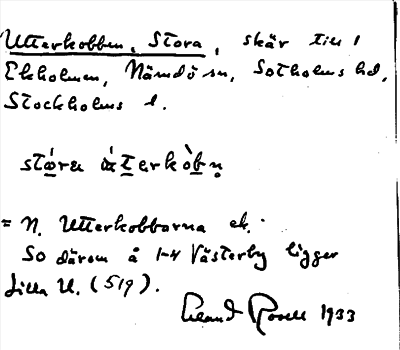 Utterkobben, Stora, skär till 1
Ekholmen, Nämdö sn, Sotholms hd,
Stockholms l.
stɷ́ra ɷ́tərkòbn̥
= N. Utterkobbarna ek.
So därom å 1-4 Västerby ligger
Lilla U. (519).
Erland Rosell 1933